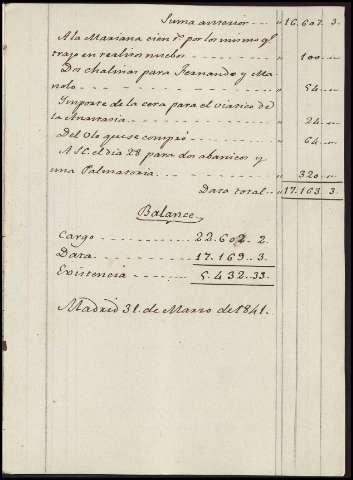 Suma anterior .. 16.607. 3.
A la Mariana cien r.s por los mismos q.e
trajo en realitos nuebos 100
Dos chalinas para Fernando y Ma
nolo 54
Importe de la cera para el viatico de
la Anastasia 24
Del Ulo que se compró 64
A S.E. el dia 28 para dos abanicos y
una Palmatoria 320
Data total .. 17.169 3.
Balance
Cargo 22.602.. 2.
Data 17.169.. 3.
Existencia 5.432..33.
Madrid 31. de Marzo de 1841.